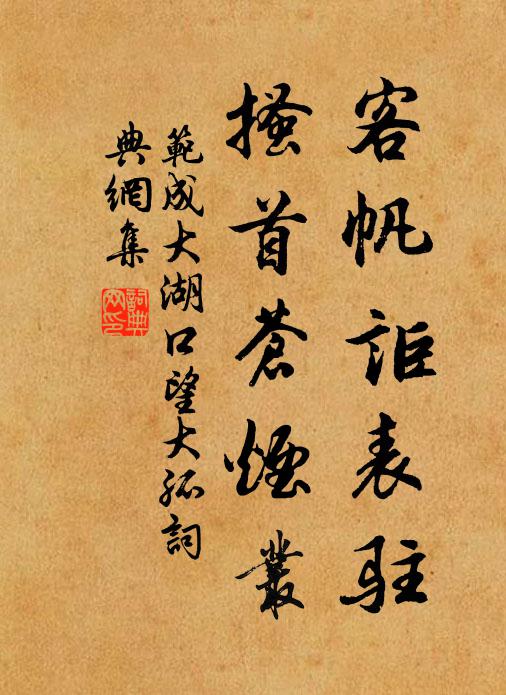 客帆詎表駐
搔首蒼煙叢
範成大湖口望大孤詞
典網集
詞典網印